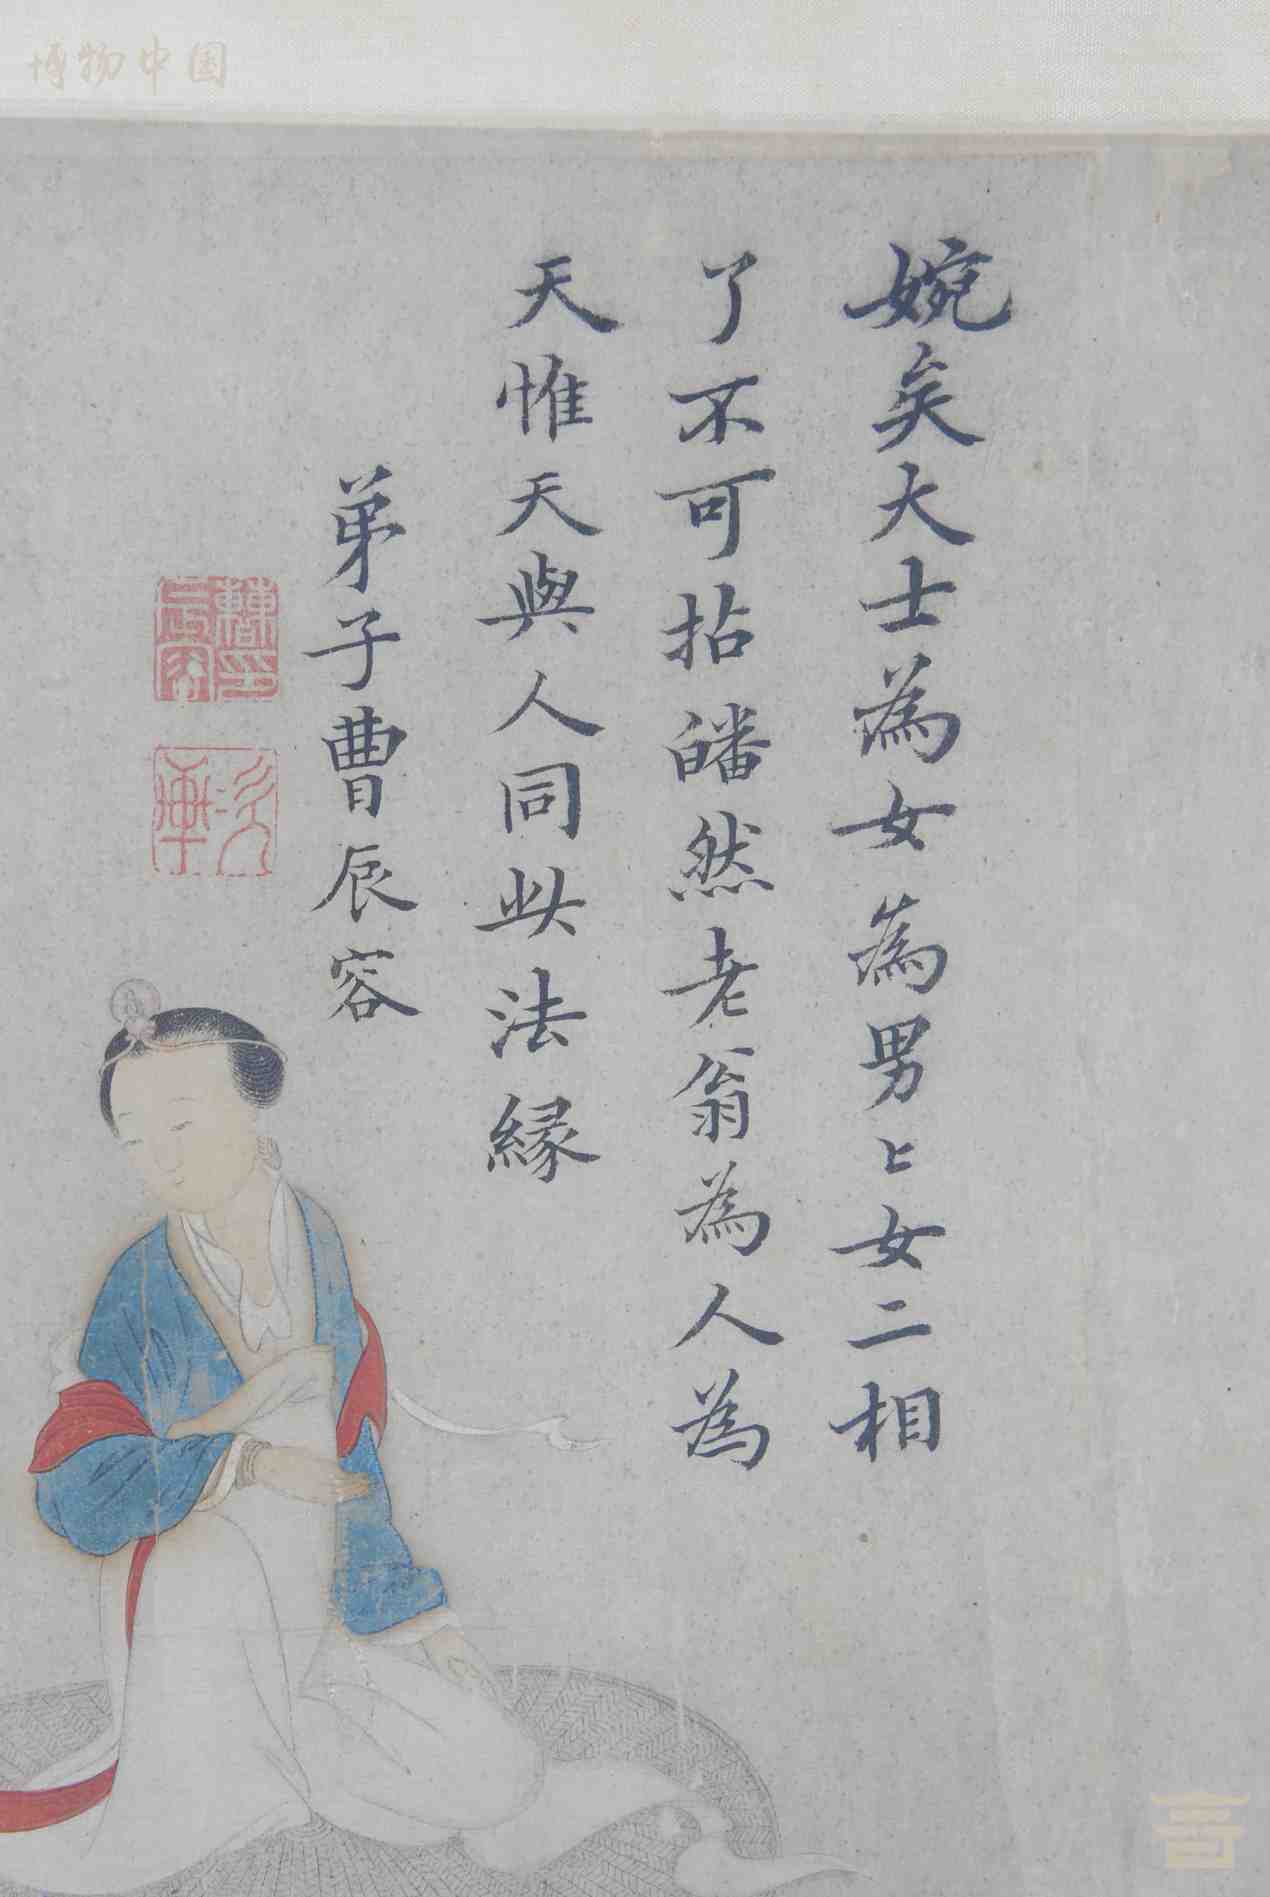 博物中国
婉矣大士為女為男〻女二相
了不可拈皤然老翁為人為
天惟天與人同此法緣
弟子曹辰容